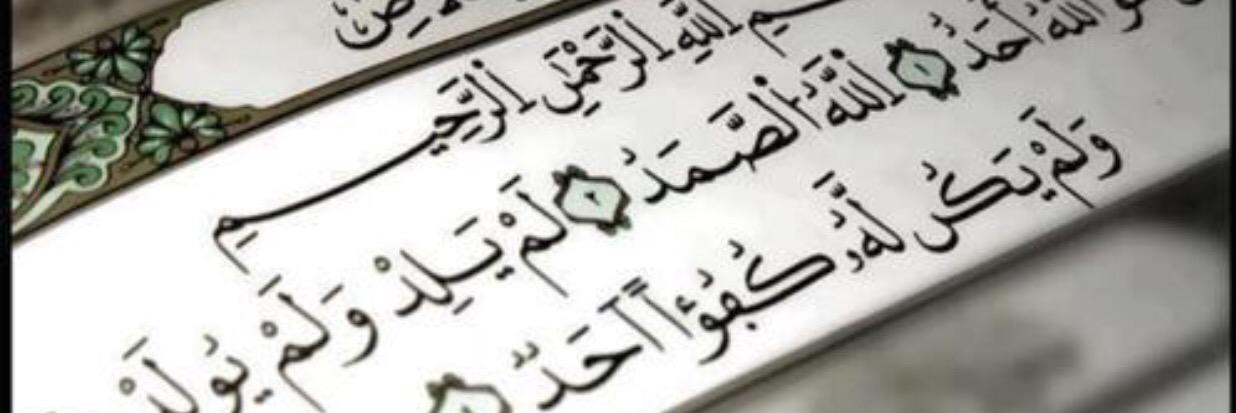 ٱللَّهِ ٱلرَّحْمَٰنِ ٱلرَّحِيمِ
ٱللَّهُ أَحَدٌ ١ ٱللَّهُ ٱلصَّمَدُ ٢ لَمْ يَلِدْ وَلَمْ يُولَدْ
وَلَمْ يَكُن لَّهُۥ كُفُؤًا أَحَدٌ